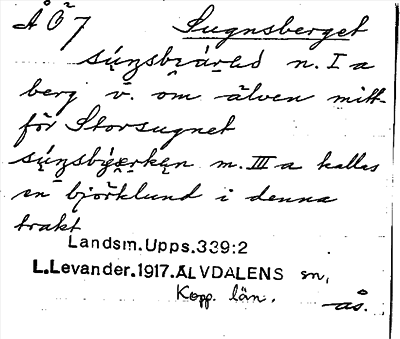 ÅÖ7 Sugnsberget
n. I a
berg v. om älven mitt-
för Storsugnet
m. III a kallas
en björklund i denna
trakt
Landsm. Upps. 339:2
L. Levander. 1917. ÄLVDALENS sn,
Kopp. län.
-ås.